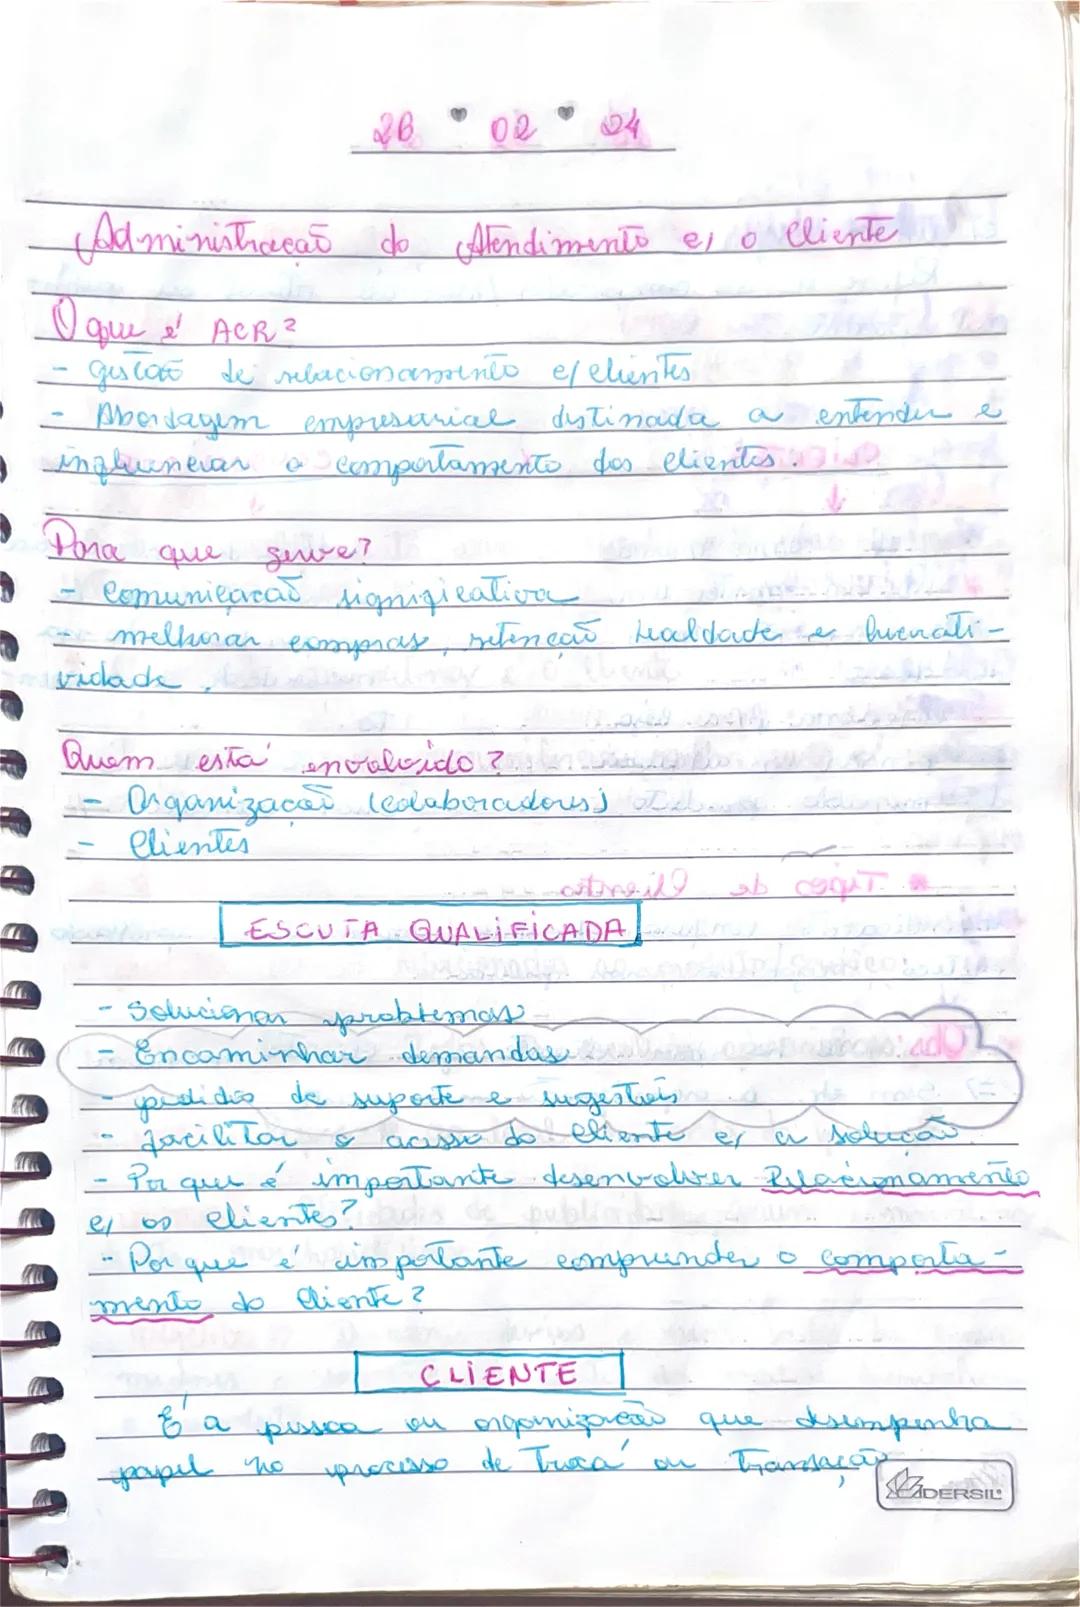 26 ♥ 02 ♥ 24
Administração do Atendimento e/ o Cliente
O que é ACR?
- gestão de relacionamento c/ clientes
- Abordagem empresarial destinada a entender e
influenciar o comportamento dos clientes.
Para que serve?
- Comunicação significativa
- melhorar compras, retenção lealdade e lucrati-
vidade.
Quem está envolvido?
- Organização (colaboradores)
- Clientes
ESCUTA QUALIFICADA
- Solucionar problemas
- Encaminhar demandas
- pedidos de suporte e sugestões
- facilitar o acesso do cliente c/ a solução.
- Por que é importante desenvolver Relacionamento
c/ os clientes?
- Por que é importante compreender o comporta-
mento do Cliente?
CLIENTE
É a pessoa ou organização que desempenha
papel no processo de Troca ou Transação
ADERSIL